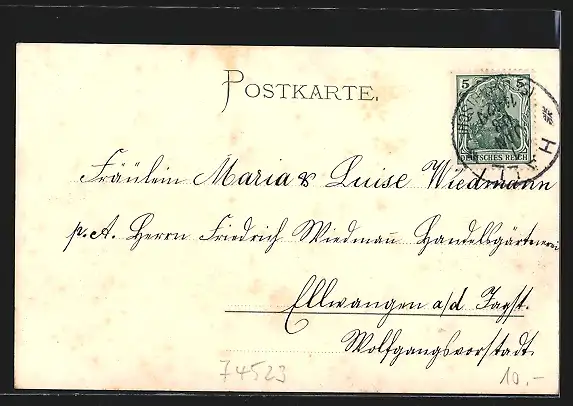 POSTKARTE.
5 5
DEUTSCHES REICH
Fräulein Maria & Luise Wiedmann
p. A. Herrn Friedrich Wiedmann Handelsgärtnerei
Ellwangen a/d Jagst.
Wolfgangsvorstadt.
74523
10.-